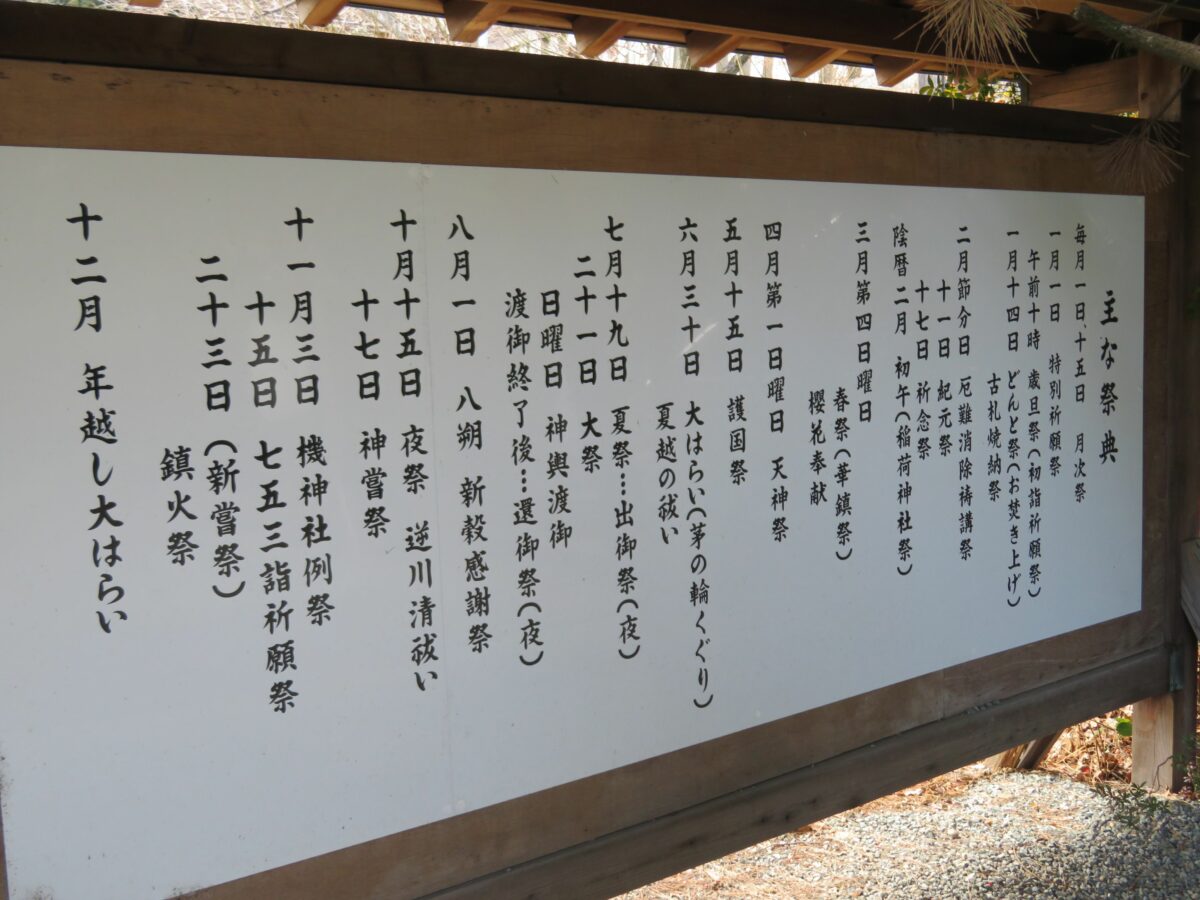 主な祭典
毎月一日、十五日 月次祭
一月一日 特別祈願祭
午前十時 歳旦祭(初詣祈願祭)
一月十四日 どんと祭(お焚き上げ)
古札焼納祭
二月節分日 厄難消除祷講祭
十一日 紀元祭
十七日 祈念祭
陰暦 二月 初午(稲荷神社祭)
三月第四日曜日
春祭(華鎮祭)
櫻花奉献
四月第一日曜日 天神祭
五月十五日 護国祭
六月三十日 大はらい(茅の輪くぐり)
夏越の祓い
七月十九日 夏祭…出御祭(夜)
二十一日 大祭
日曜日 神輿渡御
渡御終了後…還御祭(夜)
八月一日 八朔 新穀感謝祭
十月十五日 夜祭 逆川清祓い
十七日 神嘗祭
十一月三日 機神社例祭
十五日 七五三詣祈願祭
二十三日(新嘗祭)
鎮火祭
十二月 年越し大はらい